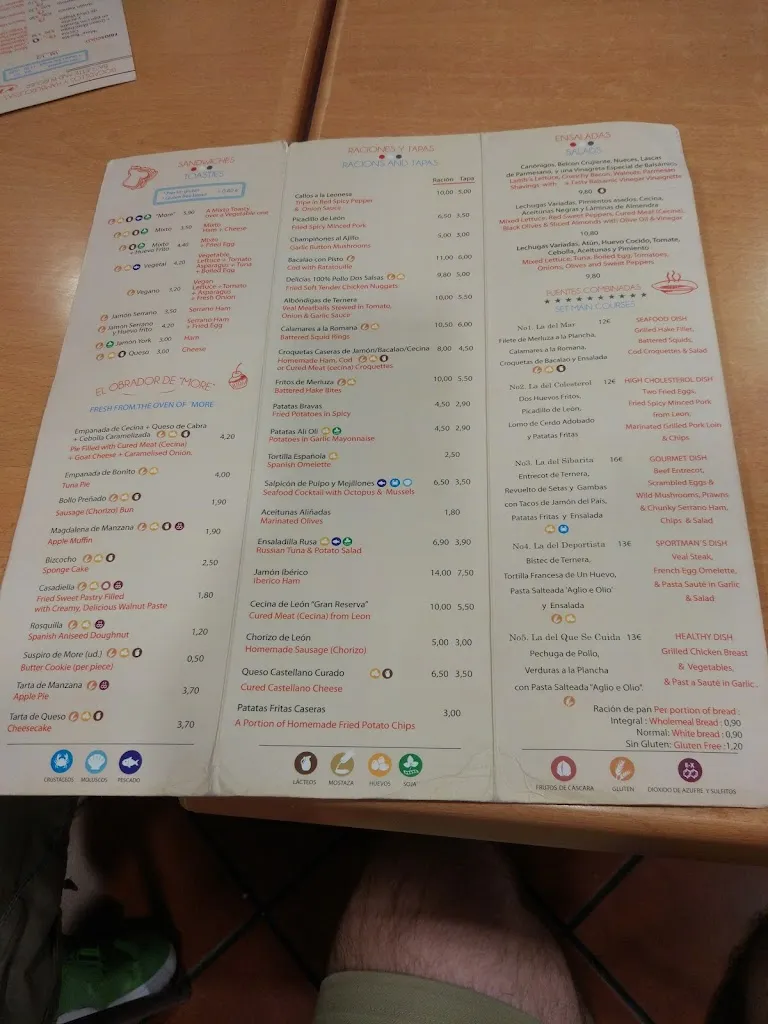 SANDWICHES
TOASTIES
"More" 5,90 A Mixto Toasty
over a Vegetable one
Mixto 3,50 Mixto
Ham + Cheese
Mixto
+ Huevo Frito 4,40 Mixto
+ Fried Egg
Vegetal 4,20 Vegetable
Lettuce + Tomato
Asparagus + Tuna
+ Boiled Egg
Vegano 3,20 Vegan
Lettuce + Tomato
+ Asparagus
+ Fresh Onion
Jamón Serrano 3,50 Serrano Ham
Jamón Serrano
y Huevo Frito 4,20 Serrano Ham
+ Fried Egg
Jamón York 3,00 Ham
Queso 3,00 Cheese
EL OBRADOR DE "MORE"
FRESH FROM THE OVEN OF "MORE
Empanada de Cecina + Queso de Cabra
+ Cebolla Caramelizada 4,20
Pie Filled with Cured Meat (Cecina)
+ Goat Cheese + Caramelised Onion.
Empanada de Bonito 4,00
Tuna Pie
Bollo Preñado 1,90
Sausage (Chorizo) Bun
Magdalena de Manzana 1,90
Apple Muffin
Bizcocho 2,50
Sponge Cake
Casadiella 1,80
Fried Sweet Pastry Filled
with Creamy, Delicious Walnut Paste
Rosquilla 1,20
Spanish Aniseed Doughnut
Suspiro de More (ud.) 0,50
Butter Cookie (per piece)
Tarta de Manzana 3,70
Apple Pie
Tarta de Queso 3,70
Cheesecake
CRUSTÁCEOS MOLUSCOS PESCADO
RACIONES Y TAPAS
RACIONS AND TAPAS
Ración Tapa
Callos a la Leonesa 10,00 5,00
Tripe in Red Spicy Pepper
& Onion Sauce
Picadillo de León 6,50 3,50
Fried Spicy Minced Pork
Champiñones al Ajillo 5,00 3,00
Garlic Button Mushrooms
Bacalao con Pisto 11,00 6,00
Cod with Ratatouille
Delicias 100% Pollo Dos Salsas 9,80 5,00
Fried Soft Tender Chicken Nuggets
Albóndigas de Ternera 10,00 5,50
Veal Meatballs Stewed in Tomato,
Onion & Garlic Sauce
Calamares a la Romana 10,50 6,00
Battered Squid Rings
Croquetas Caseras de Jamón/Bacalao/Cecina 8,00 4,50
Homemade Ham, Cod
or Cured Meat (cecina) Croquettes
Fritos de Merluza 10,00 5,50
Battered Hake Bites
Patatas Bravas 4,50 2,90
Fried Potatoes in Spicy
Patatas Ali Oli 4,50 2,90
Potatoes in Garlic Mayonnaise
Tortilla Española 2,50
Spanish Omelette
Salpicón de Pulpo y Mejillones 6,50 3,50
Seafood Cocktail with Octopus & Mussels
Aceitunas Aliñadas 1,80
Marinated Olives
Ensaladilla Rusa 6,90 3,90
Russian Tuna & Potato Salad
Jamón Ibérico 14,00 7,50
Iberico Ham
Cecina de León "Gran Reserva" 10,00 5,50
Cured Meat (Cecina) from Leon
Chorizo de León 5,00 3,00
Homemade Sausage (Chorizo)
Queso Castellano Curado 6,50 3,50
Cured Castellano Cheese
Patatas Fritas Caseras 3,00
A Portion of Homemade Fried Potato Chips
LÁCTEOS MOSTAZA HUEVOS SOJA
ENSALADAS
SALADS
Canónigos, Beicon Crujiente, Nueces, Lascas
de Parmesano, y una Vinagreta Especial de Balsámico.
Lamb's Lettuce, Crunchy Bacon, Walnuts, Parmesan
Shavings with a Tasty Balsamic Vinegar Vinaigrette
9,80
Lechugas Variadas, Pimientos Asados, Cecina,
Aceitunas Negras y Láminas de Almendra
Mixed Lettuce, Red Sweet Peppers, Cured Meat (Cecina),
Black Olives & Sliced Almonds with Olive Oil & Vinegar
10,80
Lechugas Variadas, Atún, Huevo Cocido, Tomate,
Cebolla, Aceitunas y Pimiento
Mixed Lettuce, Tuna, Boiled Egg, Tomatoes,
Onions, Olives and Sweet Peppers
9,80
FUENTES COMBINADAS
SET MAIN COURSES
No1. La del Mar 12€ SEAFOOD DISH
Filete de Merluza a la Plancha, Grilled Hake Fillet,
Calamares a la Romana, Battered Squids,
Croquetas de Bacalao y Ensalada Cod Croquetas & Salad
No2. La del Colesterol 12€ HIGH CHOLESTEROL DISH
Dos Huevos Fritos, Two Fried Eggs,
Picadillo de León, Fried Spicy Minced Pork
from Leon,
Lomo de Cerdo Adobado Marinated Grilled Pork Loin
y Patatas Fritas & Chips
No3. La del Sibarita 16€ GOURMET DISH
Entrecot de Ternera, Beef Entrecot,
Revuelto de Setas y Gambas Scrambled Eggs &
Wild Mushrooms, Prawns
con Tacos de Jamón del País, & Chunky Serrano Ham,
Patatas Fritas y Ensalada Chips & Salad
No4. La del Deportista 13€ SPORTMAN'S DISH
Bistec de Ternera, Veal Steak,
Tortilla Francesa de Un Huevo, French Egg Omelette,
Pasta Salteada 'Aglio e Olio' & Pasta Sauté in Garlic
y Ensalada & Salad
No5. La del Que Se Cuida 13€ HEALTHY DISH
Pechuga de Pollo, Grilled Chicken Breast
Verduras a la Plancha & Vegetables,
con Pasta Salteada "Aglio e Olio" & Past a Sauté in Garlic
Ración de pan Per portion of bread:
Integral : Wholemeal Bread : 0,90
Normal: White bread : 0,90
Sin Gluten: Gluten Free : 1,20
FRUTOS DE CÁSCARA GLUTEN DIÓXIDO DE AZUFRE Y SULFITOS